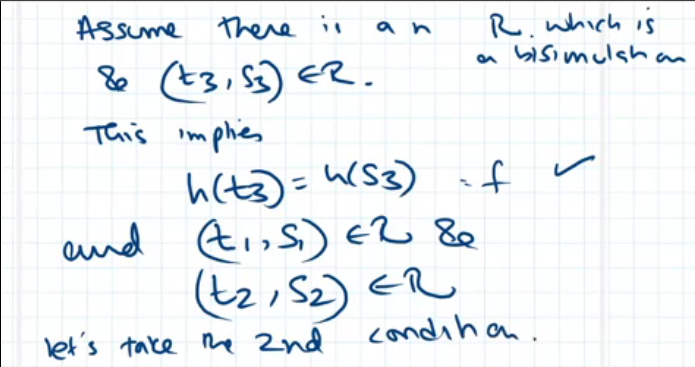 Assume there is an R. which is
a bisimulation
& (t3, s3) ∈ R.
This implies
h(t3) = h(s3) = f ✓
and (t1, s1) ∈ R &
(t2, s2) ∈ R
let's take the 2nd condition.